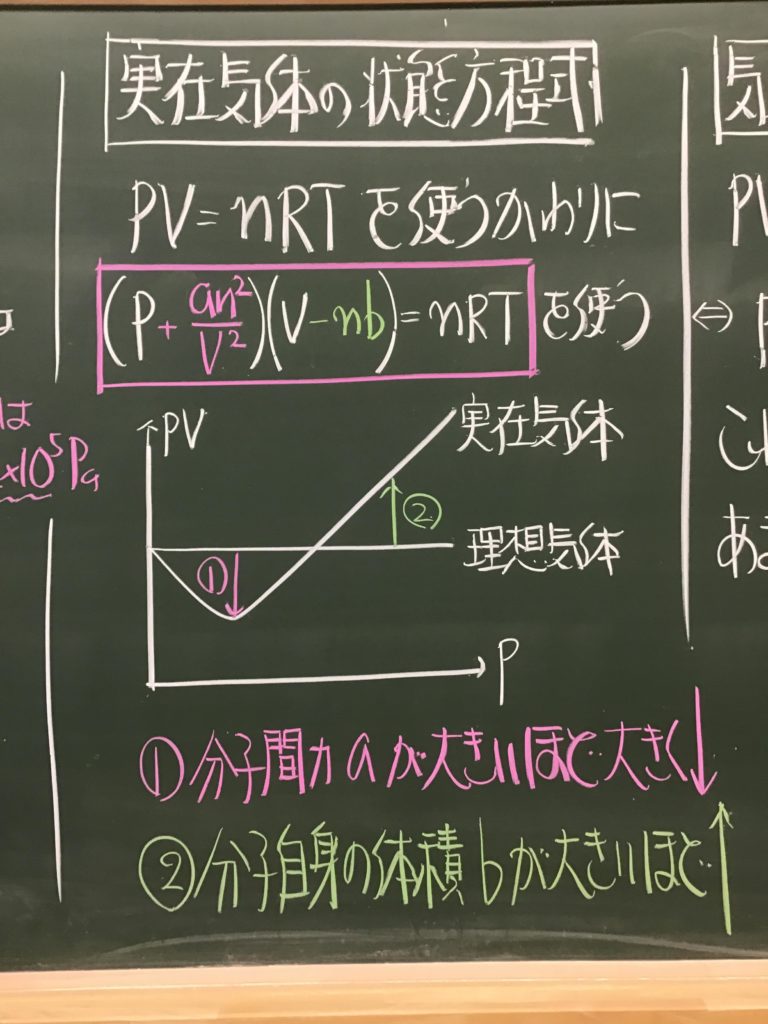 実在気体の状態方程式
PV=nRTを使うかわりに
(P+an²/V²)(V-nb)=nRTを使う
は
×10⁵Pa
PV
実在気体
②
理想気体
①
P
①分子間力aが大きいほど大きく↓
②分子自身の体積bが大きいほど↑
気
PV
⇔
あ